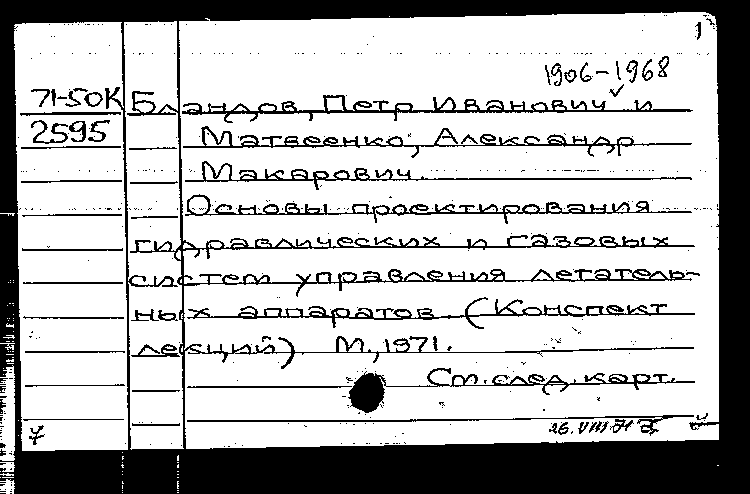 1
1906-1968
71-50К Бландов, Петр Иванович и
2595 Матвеенко, Александр
Макарович.
Основы проектирования
гидравлических и газовых
систем управления летатель-
ных аппаратов. (Конспект
лекций) М., 1971.
См. след. карт.
26.VIII 71